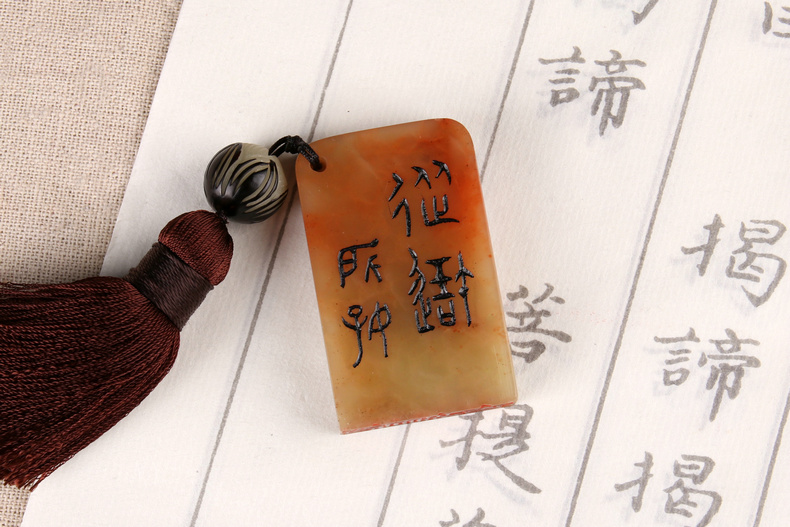 從衙
所好
揭諦揭
諦
菩提